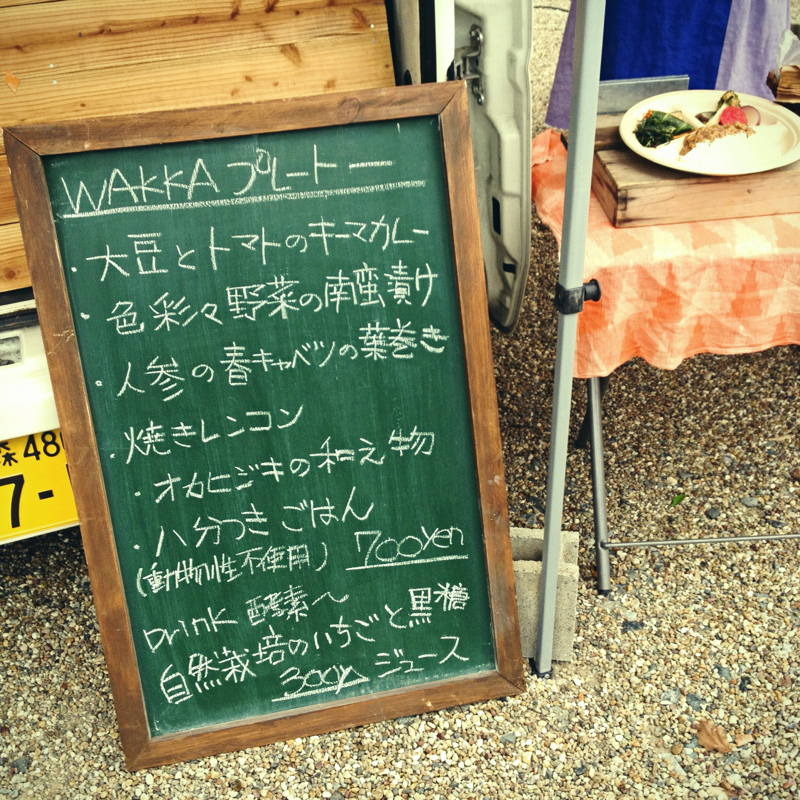 WAKKA プレートー
・大豆とトマトのキーマカレー
・色彩々野菜の南蛮漬け
・人参の春キャベツの葉巻き
・焼きレンコン
・オカヒジキの和え物
・八分つきごはん
(動物性不使用) 700yen
Drink 酵素〜
自然栽培のいちごと黒糖
300yん ジュース
森 48
7-